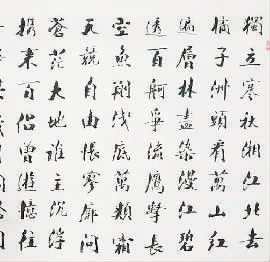 獨立寒秋湘江北去
橘子洲頭看萬山紅
遍層林盡染漫江碧
透百舸爭流鷹擊長
空魚翔淺底萬類霜
天競自由悵寥廓問
蒼茫大地誰主沉浮
携來百侶曾遊憶往